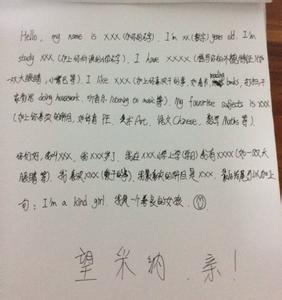 Hello, my name is xxx (加你的名字). I'm xx (数字) years old. I'm
study xxx (加上你所读的小学名字). I have xxxxx (
一双大眼睛, 小嘴巴等). I like xxx (加上你喜欢干的事, 如看书 reading books, 打扫干
家务活 doing housework, 听音乐 listening to music 等). My favorite subjects is xxx
(加上你喜欢的科目, 如体育 P.E, 美术 Art, 语文 Chinese, 数学 Maths 等).
你们好, 我叫xxx, 我xx岁了, 我在xxx (学上学(学习) 我有xxxx (如一双大
眼睛等). 我喜欢xxx (做干的事). 我最喜欢的科目是xxx. 最后结尾可以加上
句: I'm a kind girl. 我是一个善良的女孩.
望采纳, 亲!